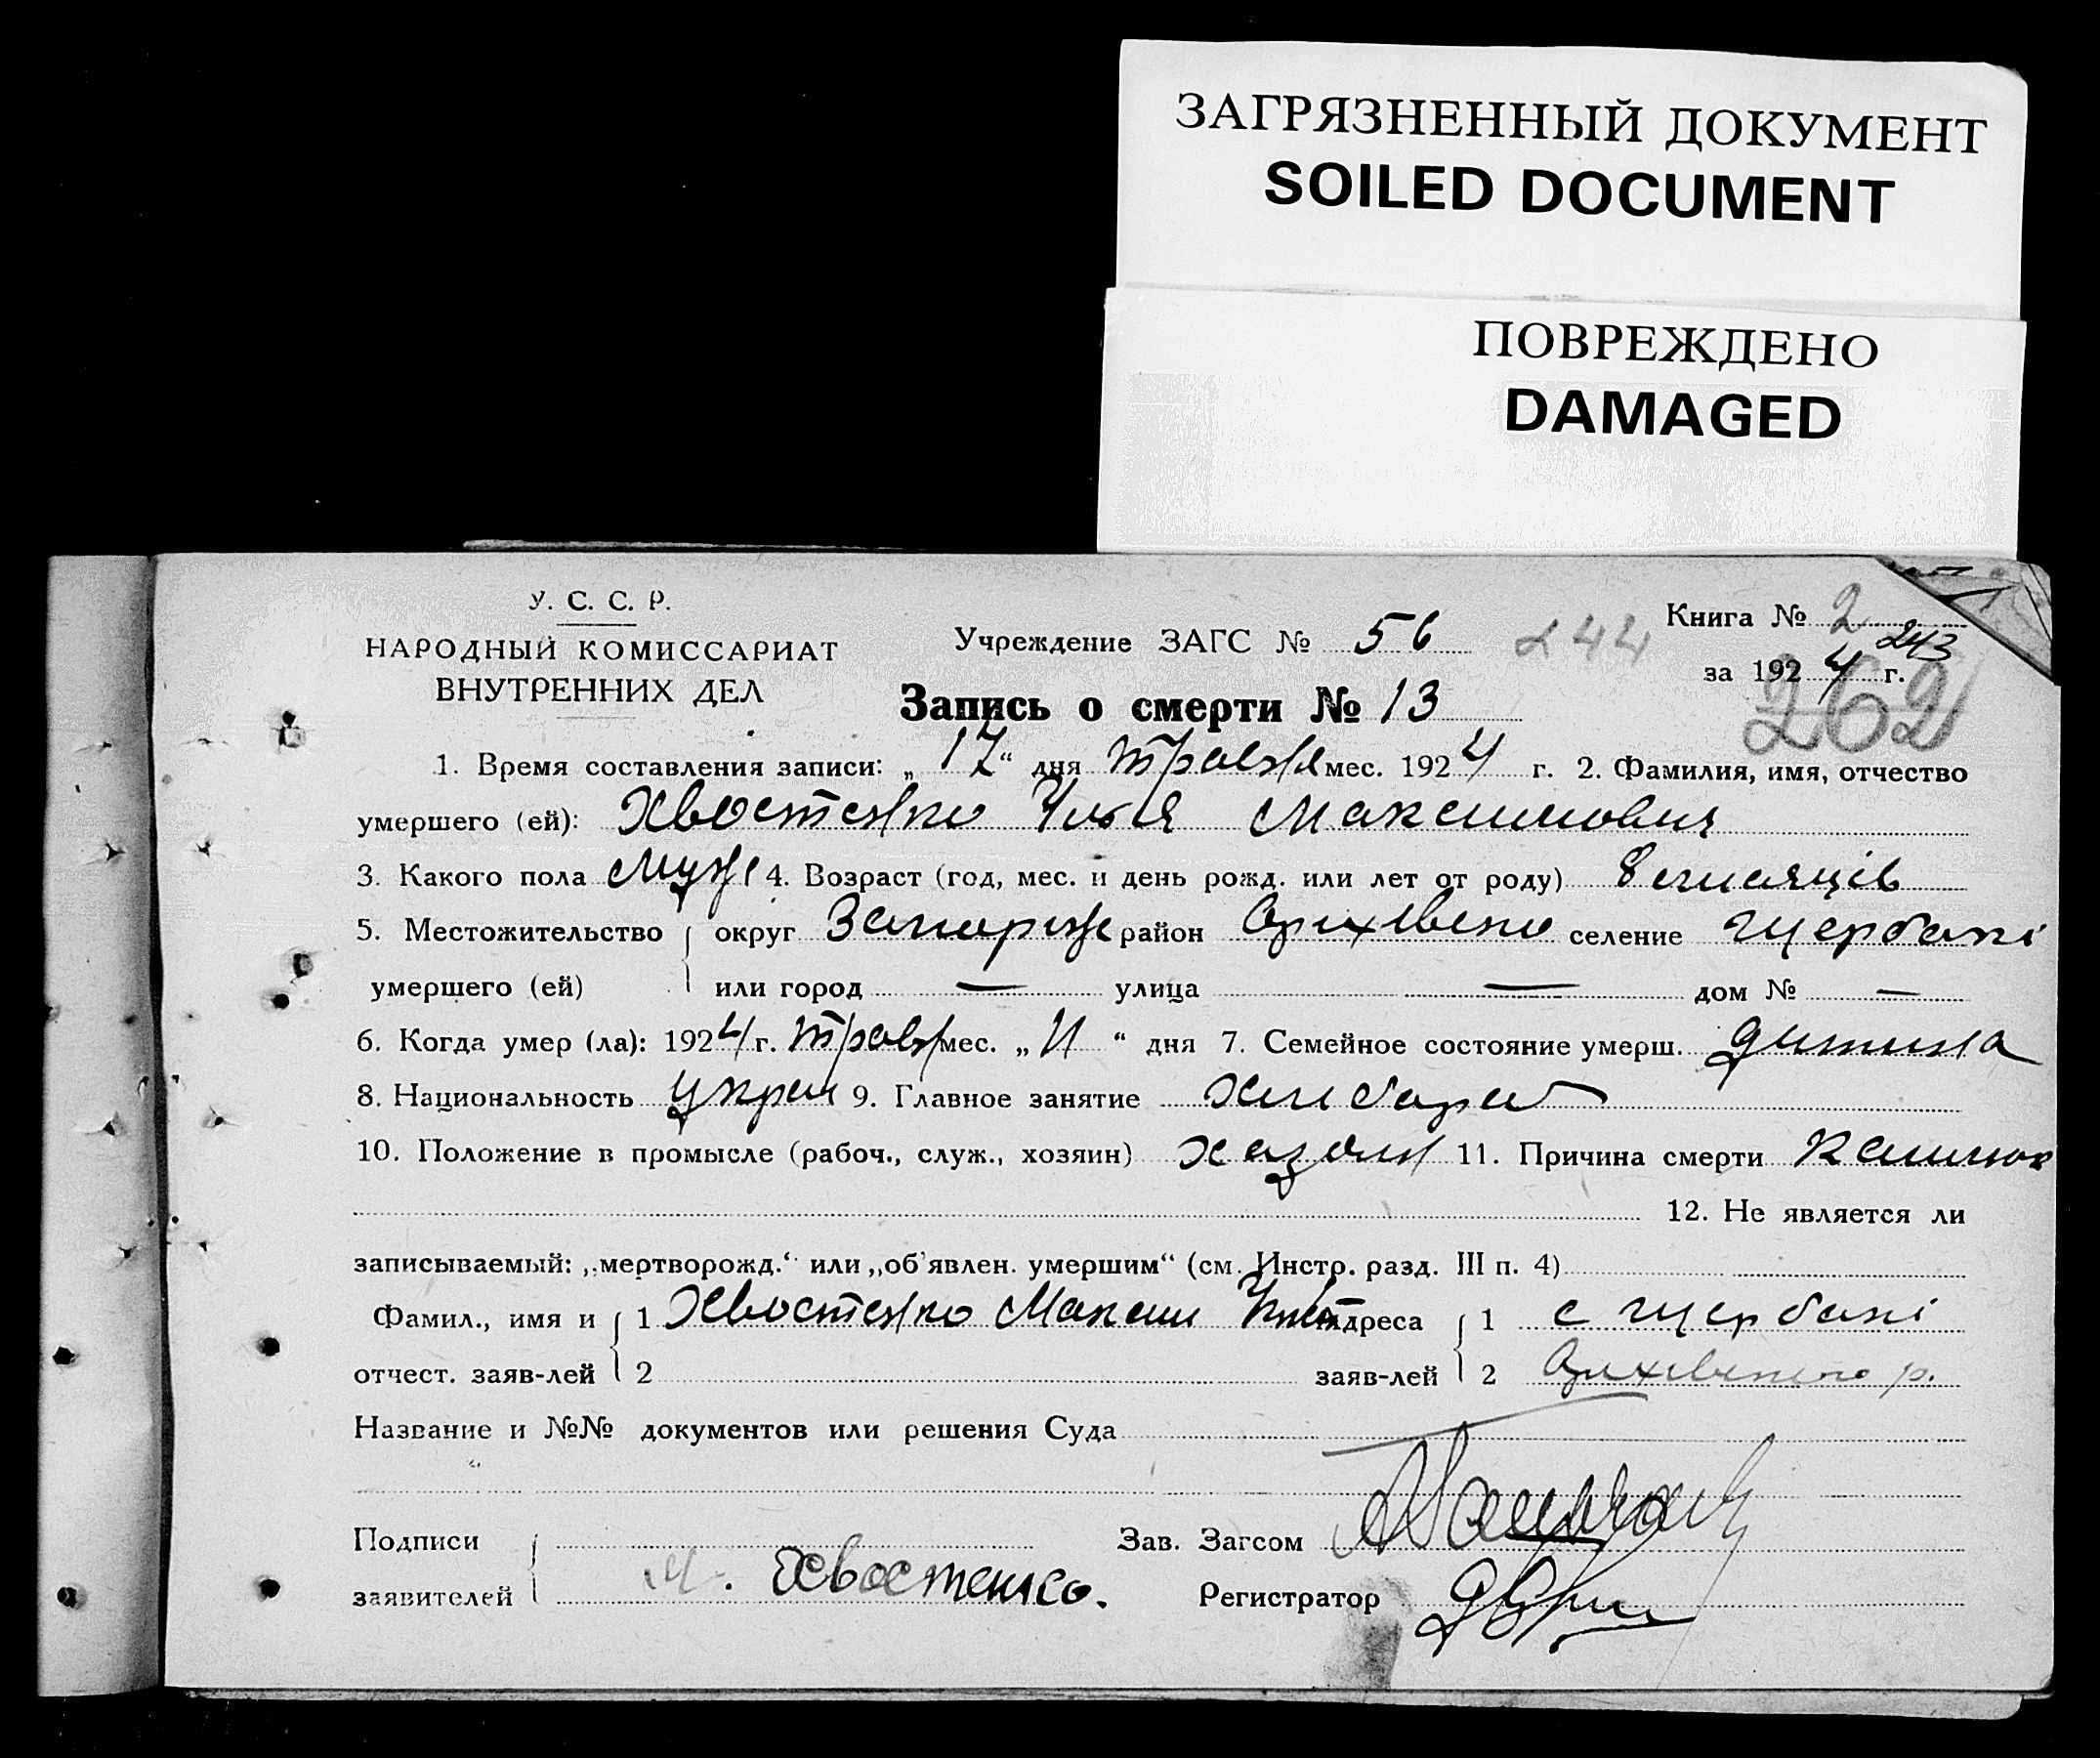 ЗАГРЯЗНЕННЫЙ ДОКУМЕНТ
SOILED DOCUMENT
ПОВРЕЖДЕНО
DAMAGED
У. С. С. Р.
НАРОДНЫЙ КОМИССАРИАТ
ВНУТРЕННИХ ДЕЛ
Учреждение ЗАГС № 56 244
Книга № 2
243
за 1924 г.
262
Запись о смерти № 13
1. Время составления записи: „17“ дня травня мес. 1924 г. 2. Фамилия, имя, отчество
умершего (ей): Хвостенко Илья Максимович
3. Какого пола муж 4. Возраст (год, мес. и день рожд. или лет от роду) 8 місяців
5. Местожительство округ Запоріж район Оріхівско селение Щербакі
умершего (ей) или город — улица — дом № —
6. Когда умер (ла): 1924 г. травн мес. „11“ дня 7. Семейное состояние умерш. дитина
8. Национальность украи 9. Главное занятие хлибороб
10. Положение в промысле (рабоч., служ., хозяин) хазяин 11. Причина смерти кашлюк
12. Не является ли
записываемый: „мертворожд.“ или „об'явлен. умершим“ (см. Инстр. разд. III п. 4)
Фамил., имя и 1 Хвостенко Максим Адреса 1 с Щербакі
отчест. заяв-лей 2 заяв-лей 2 Оріхівского р.
Название и №№ документов или решения Суда
Подписи Зав. Загсом
заявителей М. Хвостенко. Регистратор